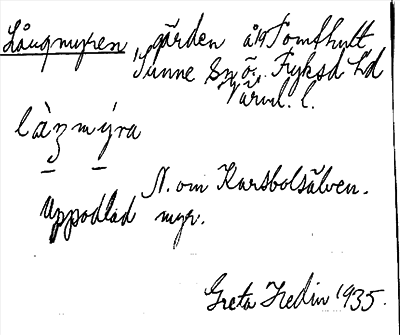 Långmyren, gärden å Tomthult
Sunne sn Ö. Fryksd. hd
Värml. l.
làŋmýra
N. om Karsbolsälven.
Uppodlad myr.
Greta Hedin 1935.